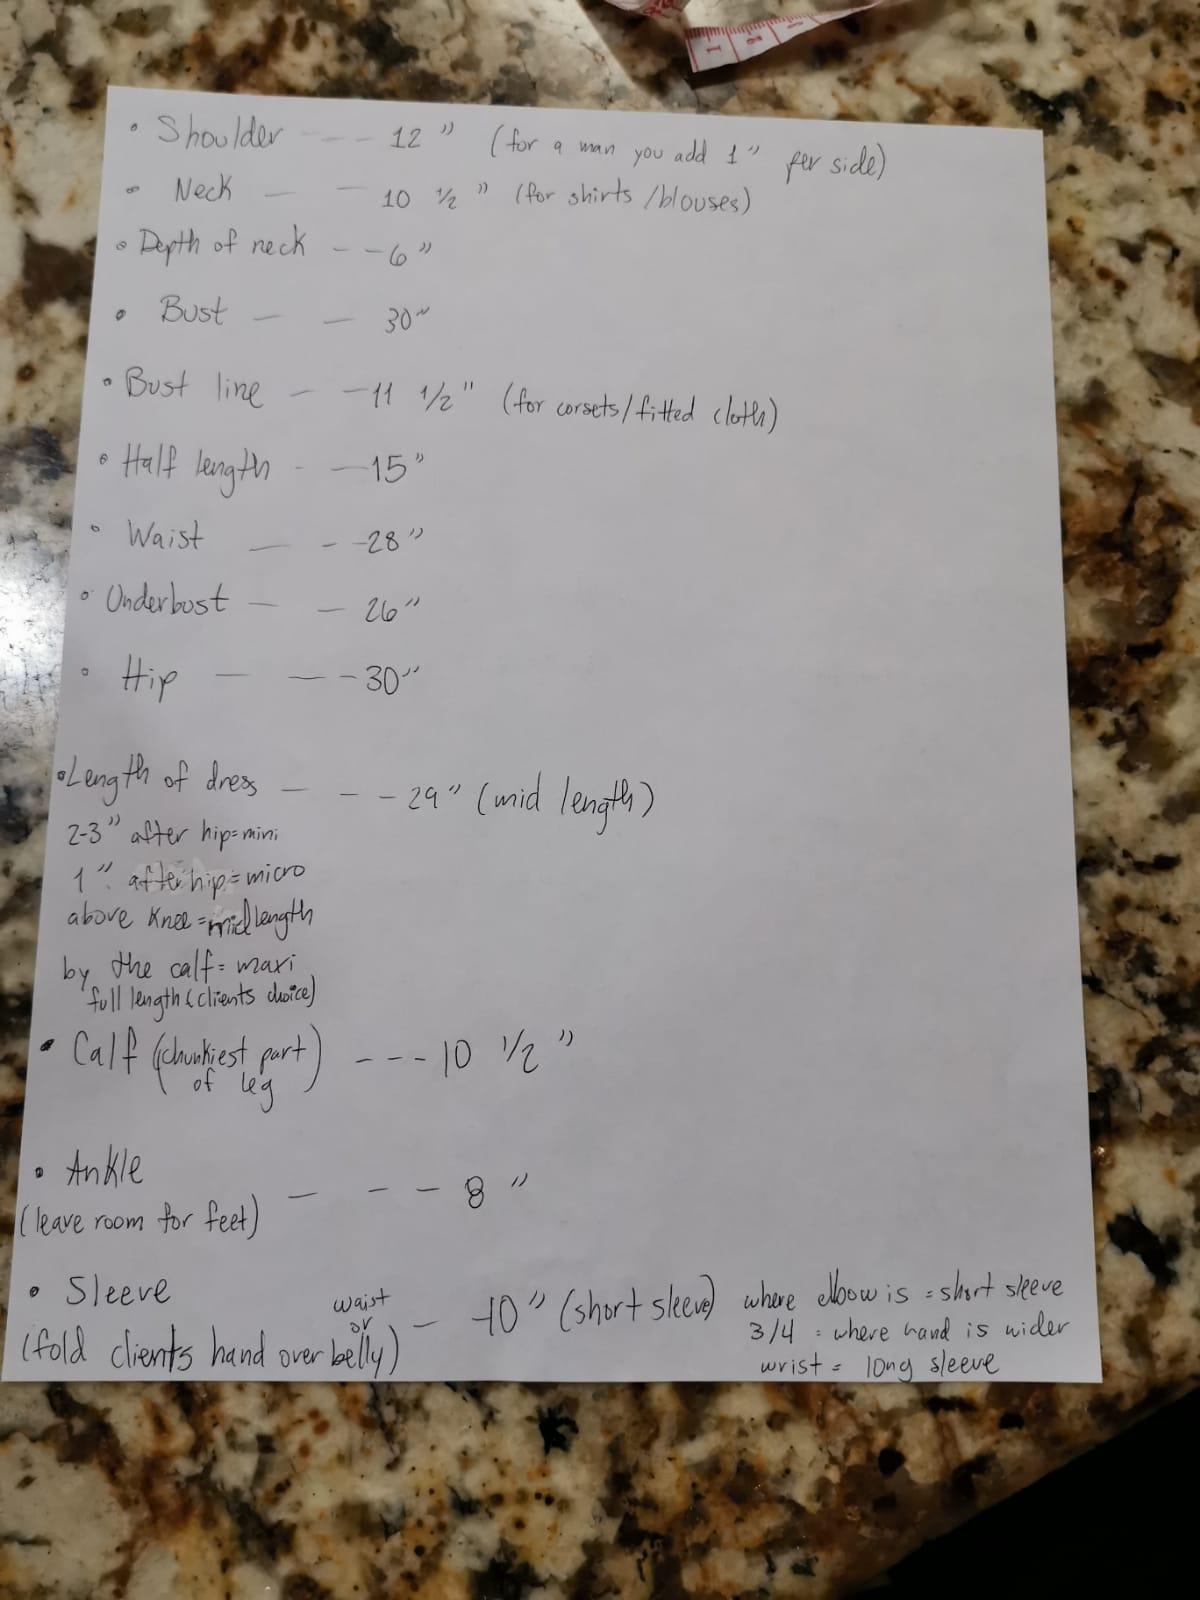 • Shoulder --- 12" (for a man you add 1" per side)
• Neck — — 10 1/2" (for shirts/blouses)
• Depth of neck -- 6"
• Bust — — 30"
• Bust line — — 11 1/2" (for corsets/fitted cloth)
• Half length - — 15"
• Waist — - - 28"
• Underbust — — 26"
• Hip — — - 30"
• Length of dress — - - 29" (mid length)
2-3" after hip=mini
1" after hip=micro
above knee=mid length
by the calf= maxi
full length (clients choice)
• Calf (chunkiest part of leg) --- 10 1/2"
• Ankle
(leave room for feet) — - - 8"
• Sleeve
(fold clients hand over waist or belly) — 10" (short sleeve)
where elbow is = short sleeve
3/4 = where hand is wider
wrist = long sleeve